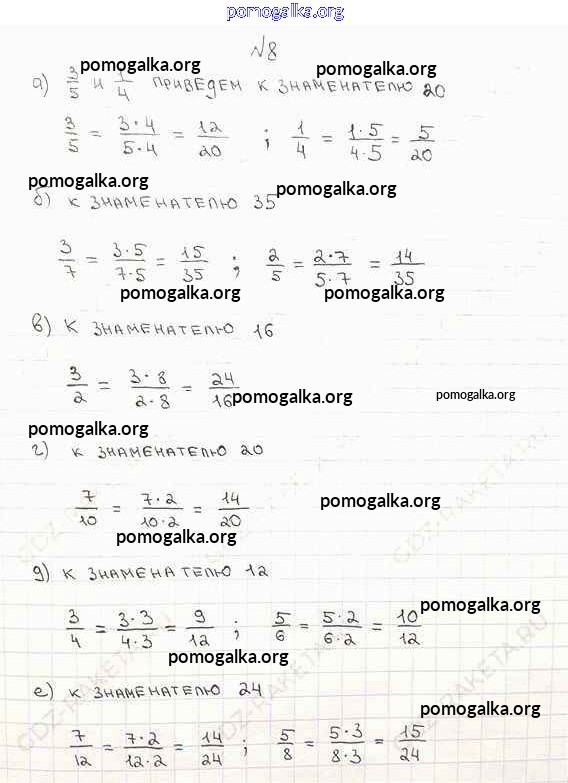 pomogalka.org
№8
pomogalka.org pomogalka.org
а) 3/5 и 1/4 приведем к знаменателю 20
3/5 = 3·4/5·4 = 12/20 ; 1/4 = 1·5/4·5 = 5/20
pomogalka.org pomogalka.org
б) к знаменателю 35
3/7 = 3·5/7·5 = 15/35 ; 2/5 = 2·7/5·7 = 14/35
pomogalka.org pomogalka.org
в) к знаменателю 16
3/2 = 3·8/2·8 = 24/16
pomogalka.org pomogalka.org
pomogalka.org
г) к знаменателю 20
7/10 = 7·2/10·2 = 14/20
pomogalka.org
pomogalka.org
GDZ-RAKETA.RU
д) к знаменателю 12
pomogalka.org
3/4 = 3·3/4·3 = 9/12 ; 5/6 = 5·2/6·2 = 10/12
pomogalka.org
GDZ-RAKETA.RU
е) к знаменателю 24
pomogalka.org
7/12 = 7·2/12·2 = 14/24 ; 5/8 = 5·3/8·3 = 15/24